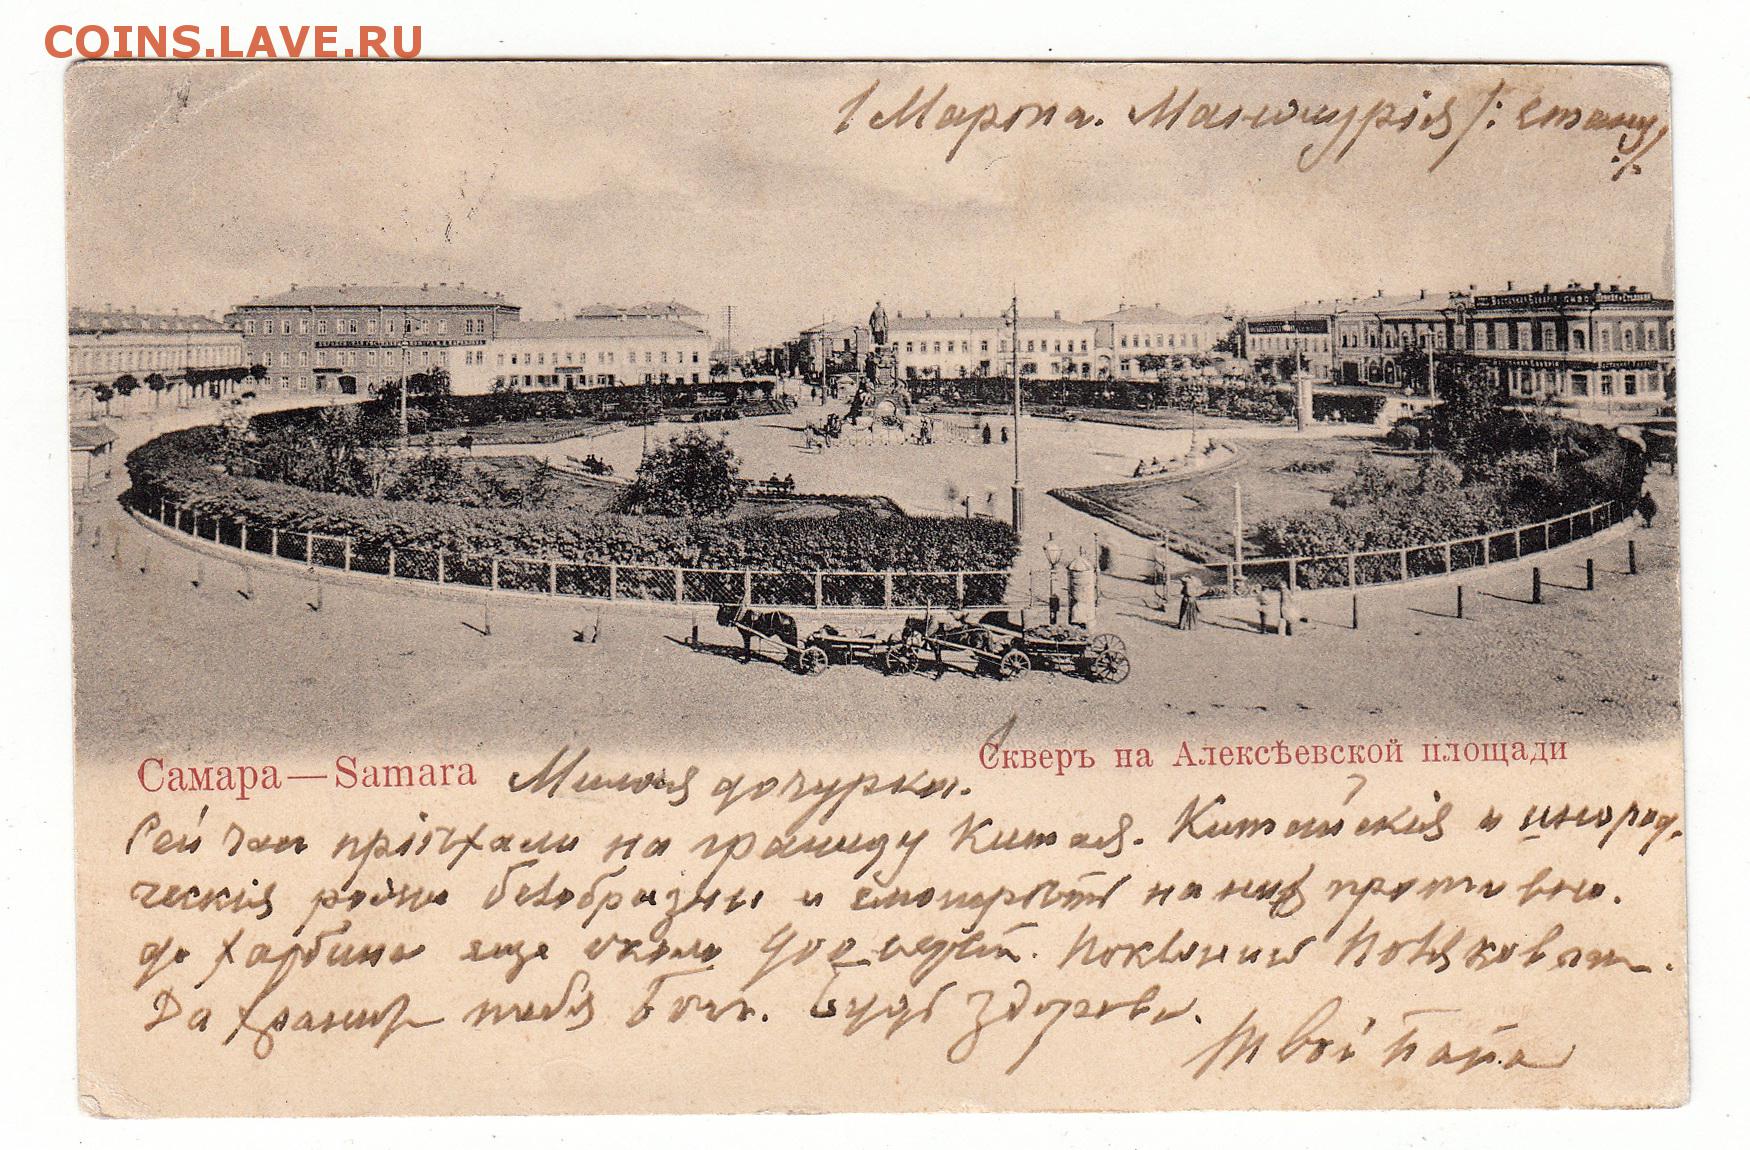 COINS.LAVE.RU
1 Марта. Манчжурія /: станц
:/.
Самара—Samara
Скверъ на Алексѣевской площади
Милая дочурка.
Сейчасъ пріѣхали на границу Китая. Китайскія и инород-
ческія рожи безобразны и смотрѣть на нихъ противно.
До Харбина еще около 900 верстъ. Поклонись
Да хранитъ тебя Богъ. Будь здорова.
Твой папа